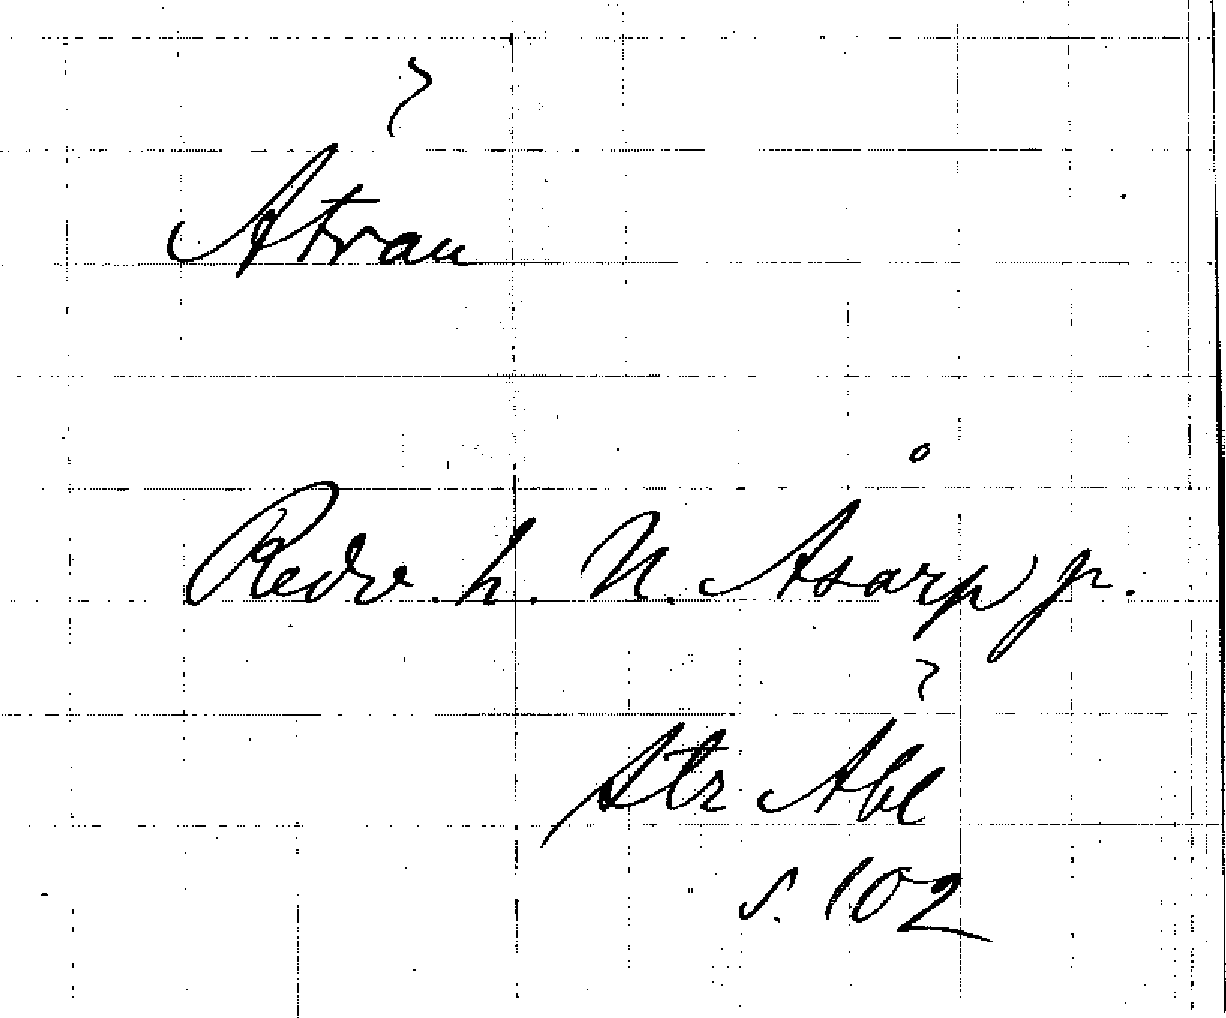 Ätran
Redv. h. N. Åsarp p.
Str Äbl
s. 102